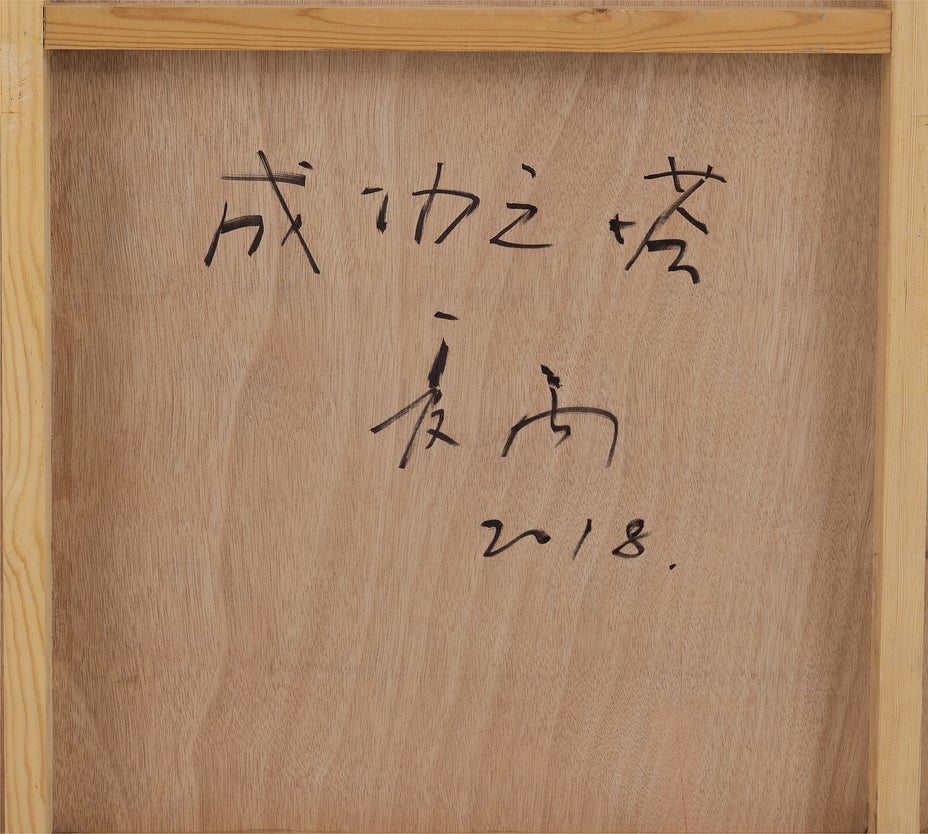 成功之塔
夏禹
2018.